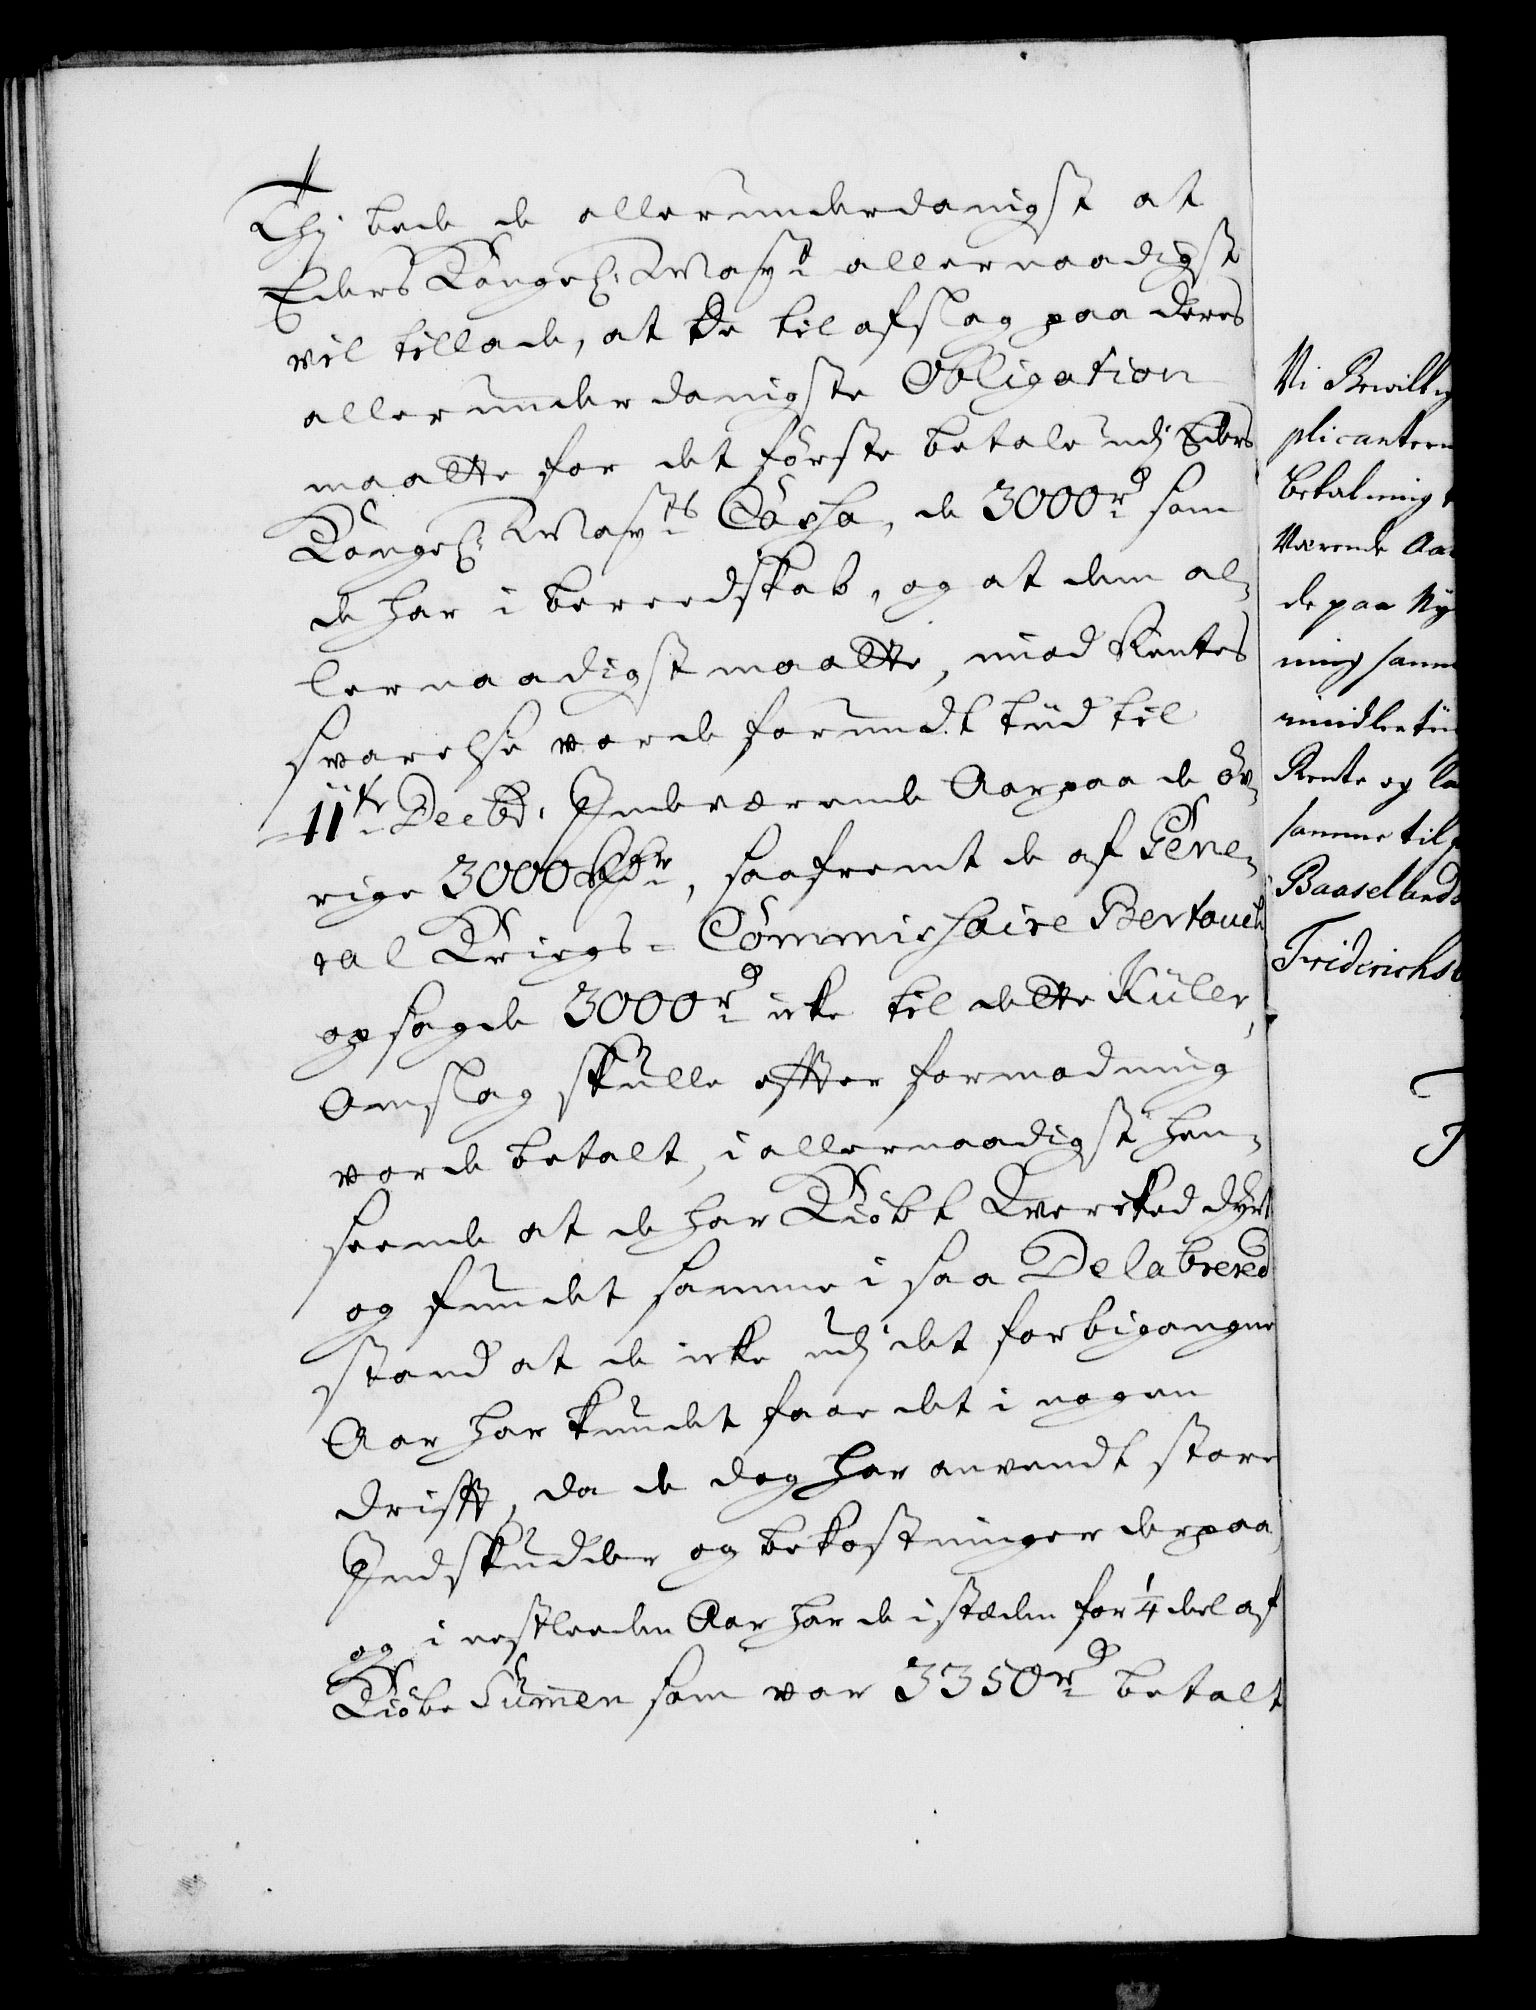 Thj bede de allerunderdanigst at
Eders Kongel: May:t allernaadigst
vil tillade, at de til afslag paa deres
allerunderdanigste Obligation
maatte for det første betale udj Eders
Kongel: May:ts Cassa, de 3000 rd som
de har i bereedskab, og at dem al-
lernaadigst maatte, mod Rentes
svarelse vorde forundt tüd til
11te Decbr: Indeværende Aar paa de öv-
rige 3000 Rdr, saafremt de af Gene-
ral Krigs- Commissaire Bertouch
opsagde 3000 rd icke til dette Kiiller
Omslag skulle efter formodning
vorde betalt, i allernaadigst hen-
seende at de har Kiöbt Vercket dyrt
og fundet samme i saa Delabrered
stand at de icke udj det forbigangne
Aar har kundet faae det i nogen
drift, da de dog har anvendt store
Indskudder og bekostninger derpaa,
og i nestleeden Aar har de i stæden for 1/4 deel af
Kiöbe Summen som var 3350 rd betalt
Vi Bewillig
plicantern
betalning
Værende Aa
de paa Ny
ning samm
imidlertii
Rente og la
samme til
Baaselands
Friderichsb